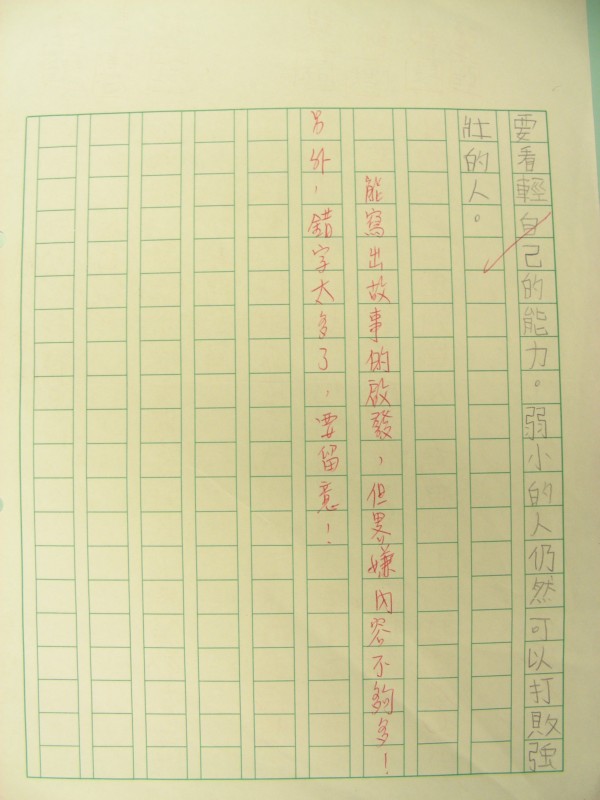 要看輕自己的能力。弱小的人仍然可以打敗強
壯的人。
能寫出故事的啟發，但畧嫌內容不夠多！
另外，錯字太多了，要留意！